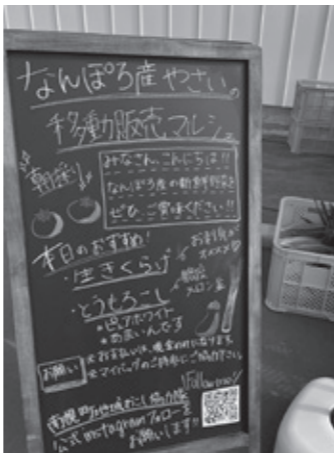 なんぽろ産やさいの
移動販売マルシェ
朝採り
みなさん、こんにちは!!
なんぽろ産の新鮮野菜を
ぜひ、ご賞味ください!!
本日のおすすめ!
・生きくらげ
お刺身が
オススメ♡
・とうもろこし
*ピュアホワイト
*あまいんです
お願い
※お支払いは、現金のみになります。
※マイバッグのご持参にご協力下さい。
Follow me!
南幌町地域おこし協力隊
公式Instagramフォローを
お願いします!!